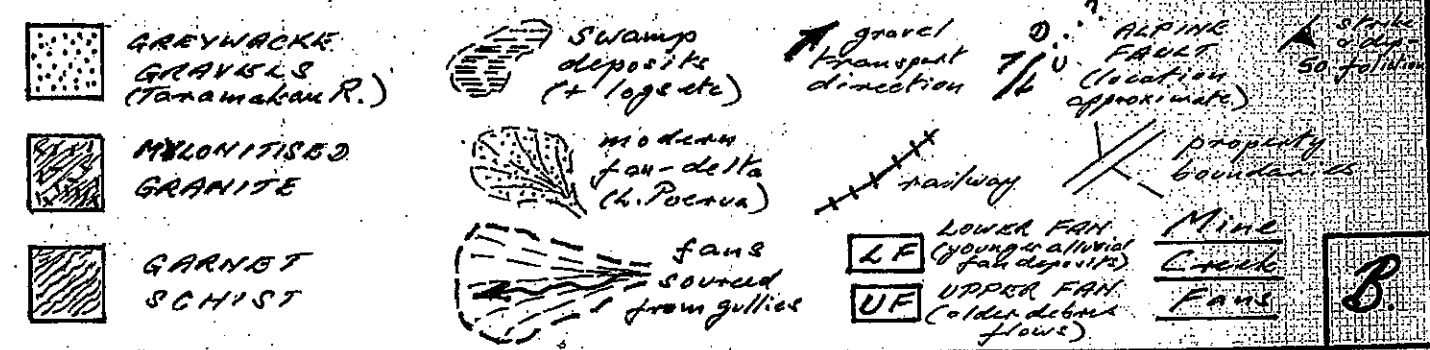 GREYWACKE
GRAVELS
(Taramakau R.)
MYLONITISED
GRANITE
GARNET
SCHIST
Swamp
deposits
(+ logs etc)
modern
fan-delta
(L. Poerua)
fans
sourced
from gullies
gravel
transport
direction
railway
LF
LOWER FAN
(younger alluvial
fan deposits)
UF
UPPER FAN
(older debris
flows)
?
D
U
ALPINE
FAULT
(location
approximate)
property
boundaries
Mine
Creek
Fans
strike
& dip
50 foliation
B.